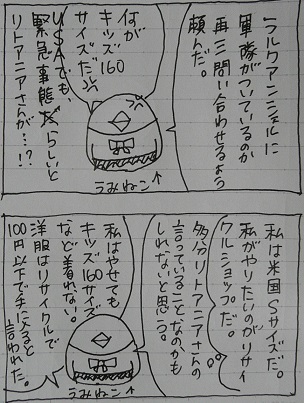 ラルクアンシェルに
軍隊がついているのか
再三問い合わせるよう
頼んだ。
何が
キッズ160
サイズだ
USAでも、
緊急事態らしいと
リトアニアさんが…!?
うみねこ↑
私は米国Sサイズだ。
私がやりたいのがリサイ
クルショップだ。
多分リトアニアさんの
言っていることなのかも
しれないと思う。
私はやせても
キッズ160サイズ
など着れない。
洋服はリサイクルで
100円以下で手に入ると
言われた。
うみねこ↑